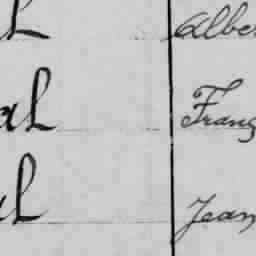 Alber
al Franç
al Jean